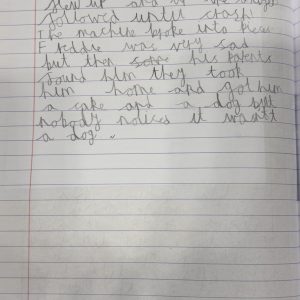 flew up and up the
followed until crash!
The machine broke into
Freddie was very sad
but then some his parents
found him they took
him home and got him
a cake and a dog but
nobody notices it wasnt
a dog.